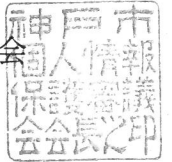 会
神戸市
個人情報
保護審議
会会長之印